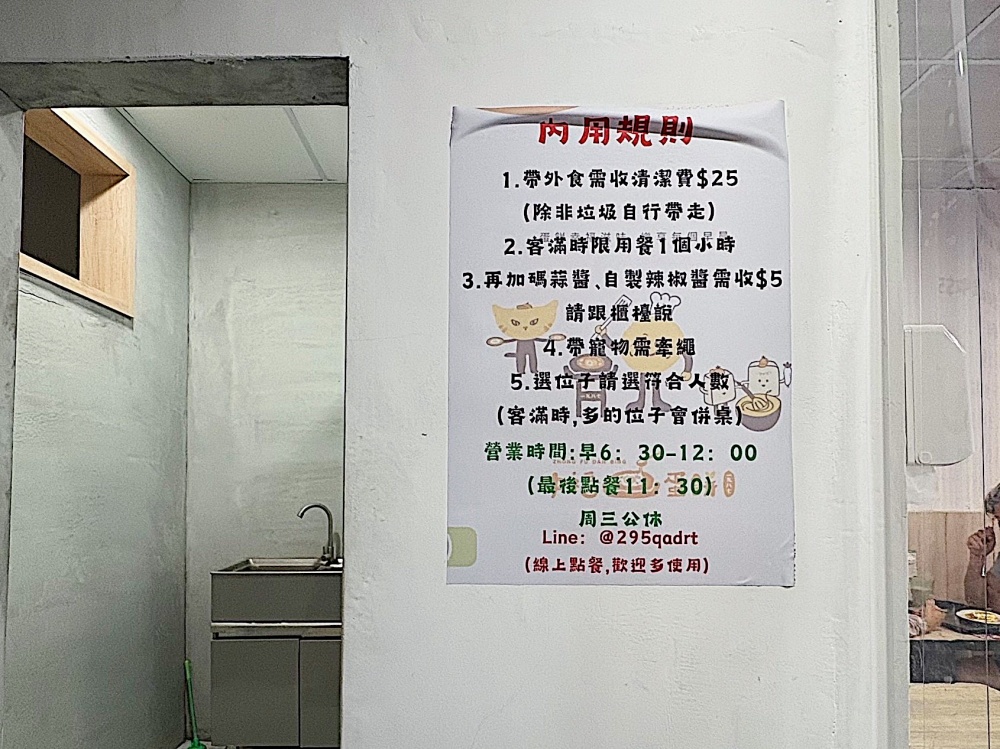 內用規則
1.帶外食需收清潔費$25
(除非垃圾自行帶走)
2.客滿時限用餐1個小時
3.再加碼蒜醬、自製辣椒醬需收$5
請跟櫃檯說
4.帶寵物需牽繩
5.選位子請選符合人數
(客滿時,多的位子會併桌)
營業時間:早6: 30-12: 00
(最後點餐11: 30)
周三公休
Line: @295qadrt
(線上點餐,歡迎多使用)